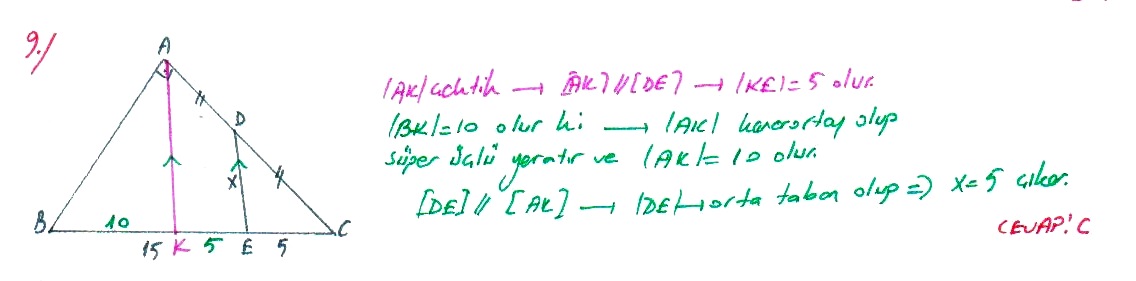 9./
A
D
x
B
10
C
15 K 5 E 5
|AK| çektik → [AK] // [DE] → |KE| = 5 olur.
|BK| = 10 olur ki → |AK| kenarortay olup
süper üçlü yaratır ve |AK| = 10 olur.
[DE] // [AK] → |DE| → orta taban olup ⇒ x = 5 çıkar.
CEVAP: C